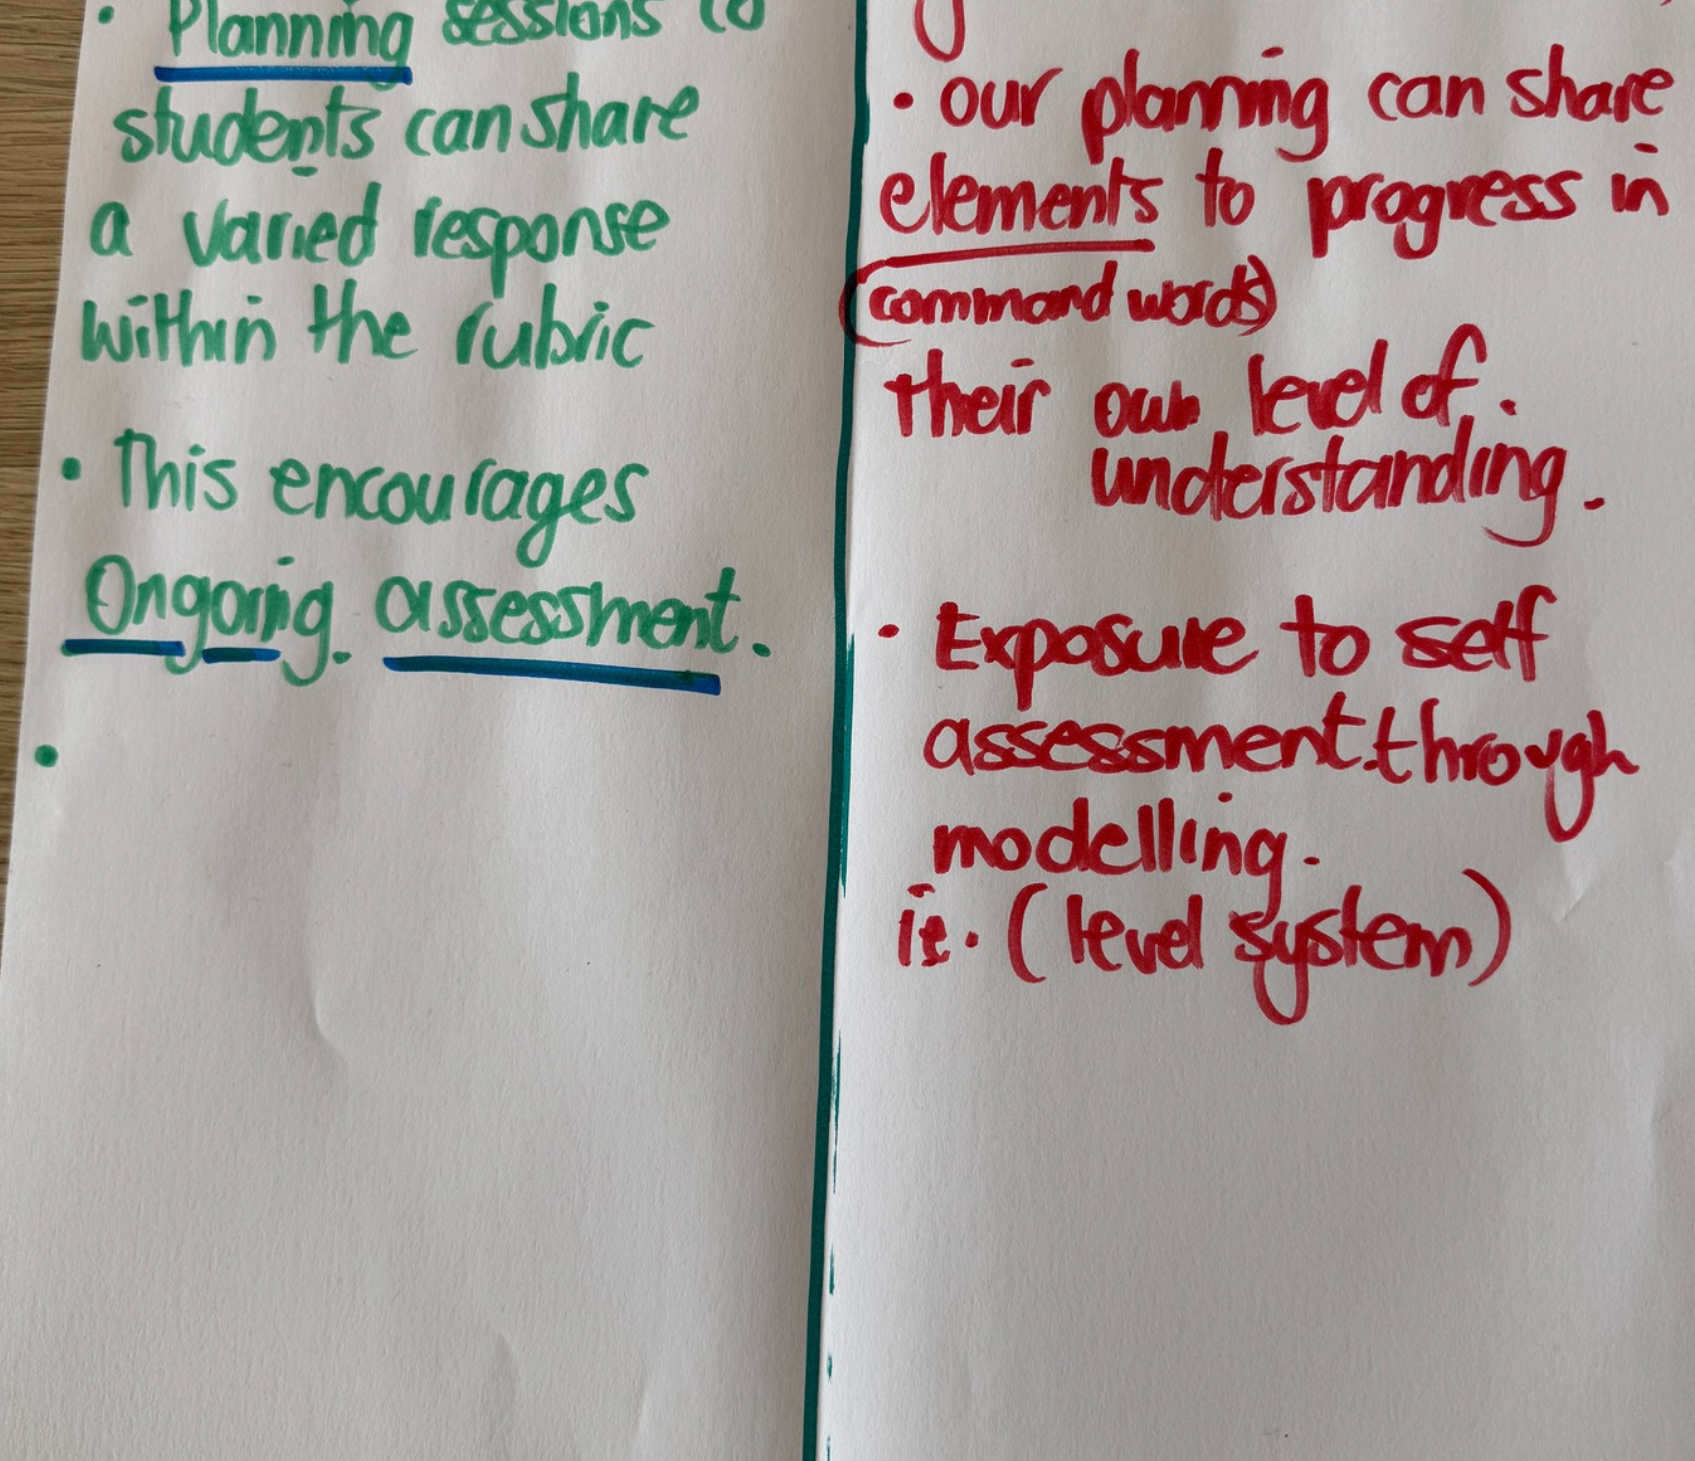 • Planning sessions to
students can share
a varied response
within the rubric
• This encourages
Ongoing. assessment.
•
• our planning can share
elements to progress in
(command words)
their own level of.
understanding.
• Exposure to self
assessment.through
modelling.
ie. (level system)